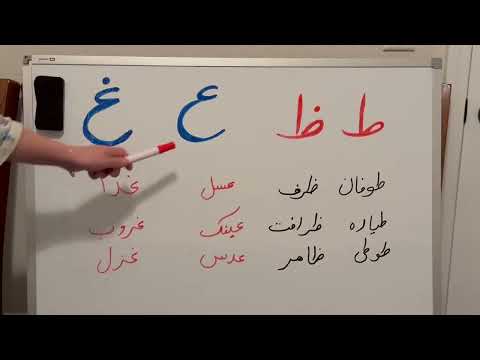 ط ظ ع غ
طوفان ظرف عسل غذا
طیاره ظرافت عینک غروب
طوطی ظاهر عدس غزل